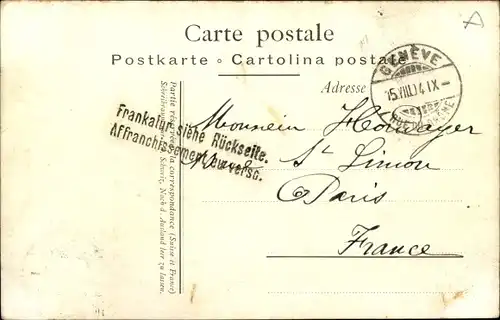 Carte postale
Postkarte ∘ Cartolina postale
Adresse
GENÈVE
15.VIII.04.IX-
Frankatur siehe Rückseite.
Affranchissement au verso.
Partie réservée à la correspondance (Suisse et France)
Schweiz. Nach d. Ausland leer zu lassen.
Monsieur
St Simon
Paris
France